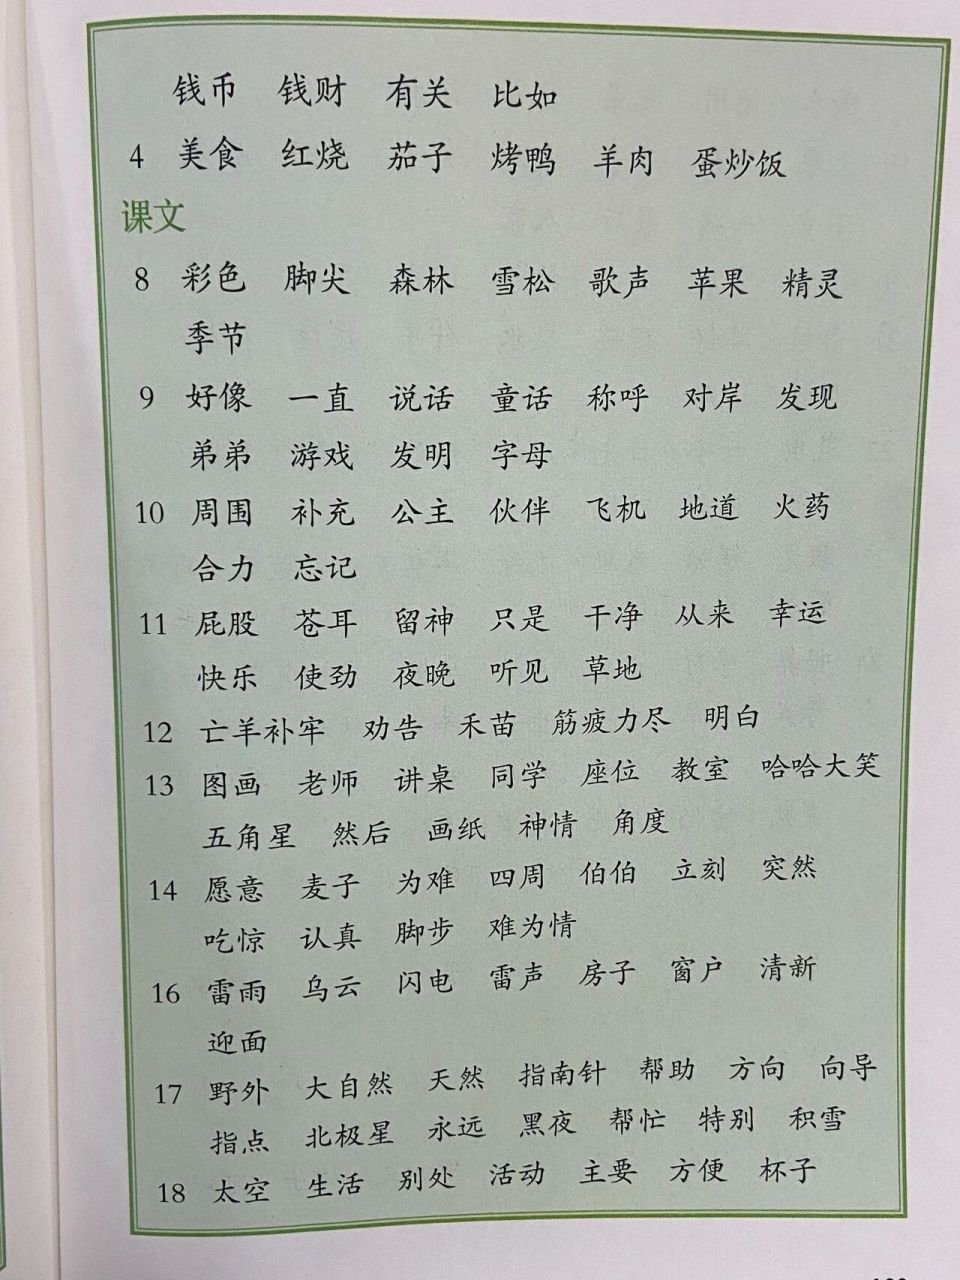 钱币 钱财 有关 比如
4 美食 红烧 茄子 烤鸭 羊肉 蛋炒饭
课文
8 彩色 脚尖 森林 雪松 歌声 苹果 精灵
季节
9 好像 一直 说话 童话 称呼 对岸 发现
弟弟 游戏 发明 字母
10 周围 补充 公主 伙伴 飞机 地道 火药
合力 忘记
11 屁股 苍耳 留神 只是 干净 从来 幸运
快乐 使劲 夜晚 听见 草地
12 亡羊补牢 劝告 禾苗 筋疲力尽 明白
13 图画 老师 讲桌 同学 座位 教室 哈哈大笑
五角星 然后 画纸 神情 角度
14 愿意 麦子 为难 四周 伯伯 立刻 突然
吃惊 认真 脚步 难为情
16 雷雨 乌云 闪电 雷声 房子 窗户 清新
迎面
17 野外 大自然 天然 指南针 帮助 方向 向导
指点 北极星 永远 黑夜 帮忙 特别 积雪
18 太空 生活 别处 活动 主要 方便 杯子